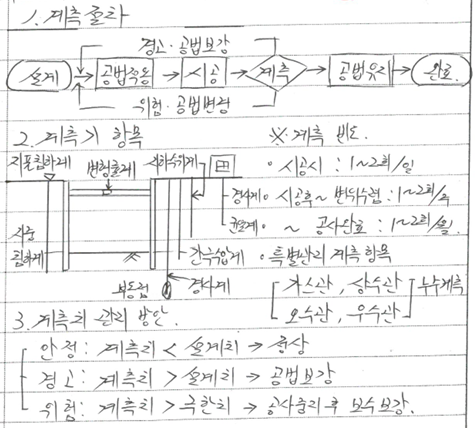 1. 계측 절차
경고·공법보강
설계 → 공법적용 → 시공 → 계측 → 공법유지 → 완료
위험·공법변경
2. 계측기 항목 ※ 계측 빈도.
지표침하계 변형률계 지하수위계 · 시공시 : 1~2회/일
경사계 · 시공후 ~ 변위수렴 : 1~2회/주
지중 균열계 · ~ 공사완료 : 1~2회/월
침하계 간극수압계 · 특별관리 계측 항목
부동점 경사계 [ 가스관, 상수관 ] 누수계측
오수관, 우수관
3. 계측치 관리 방안.
안정 : 계측치 < 설계치 → 정상
경고 : 계측치 > 설계치 → 공법보강
위험 : 계측치 > 극한치 → 공사중지 후 보수보강.